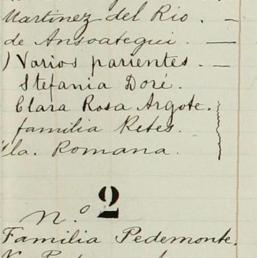 Martinez del Rio. —
de Ansoategui. —
) Varios parientes. —
Stefania Doré.
Clara Rosa Argote.
familia Retes.
la. Romana.
N.º 2
Familia Pedemonte.